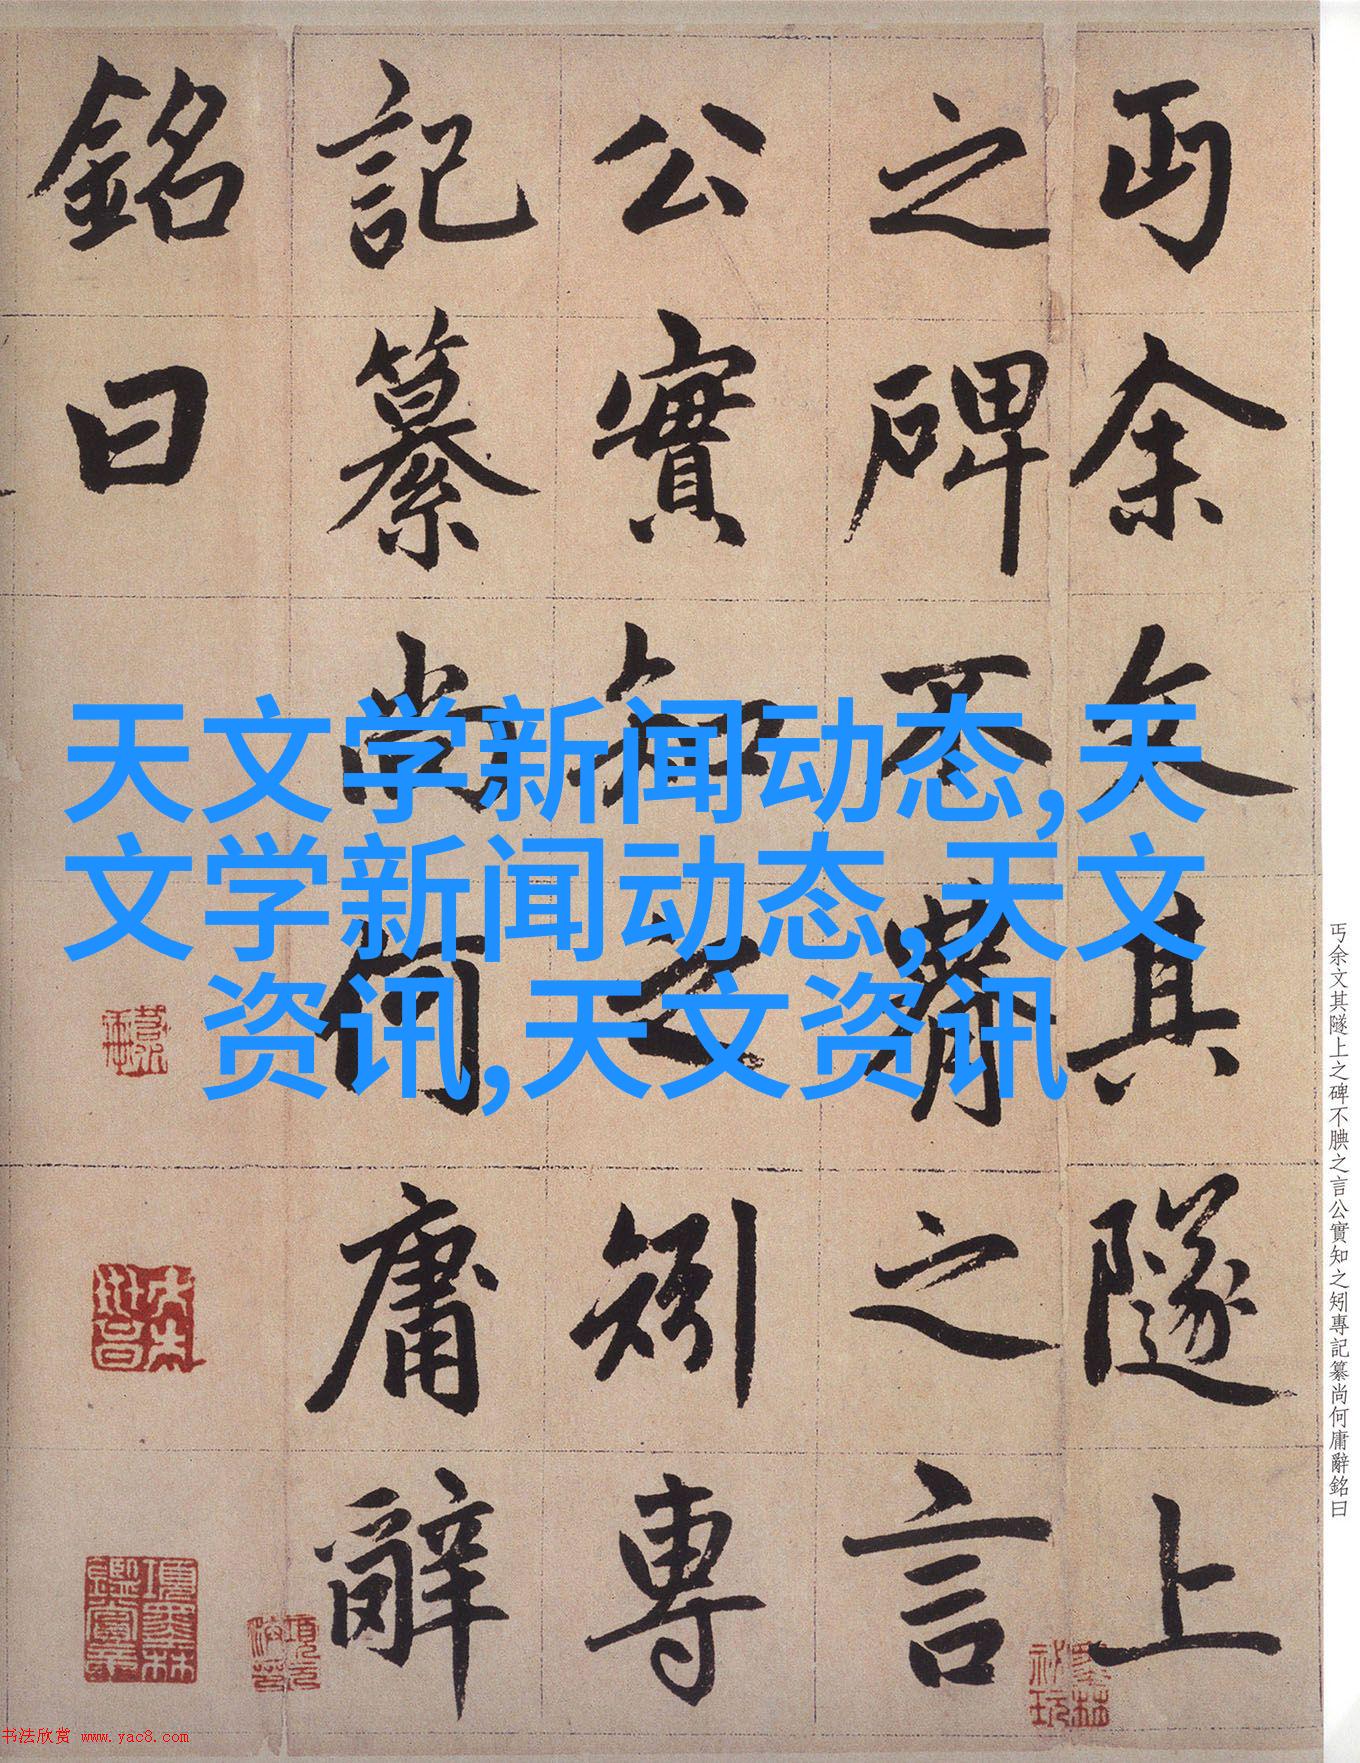 丏余文其隧上
之碑不腆之言
公實知之矧專
記纂尚何庸辭
銘曰
天文学新闻动态,天
文学新闻动态,天文
资讯,天文资讯
丏余文其隧上之碑不腆之言公實知之矧專記纂尚何庸辭銘曰
项墨林鑑賞章
书法欣赏 www.yac8.com